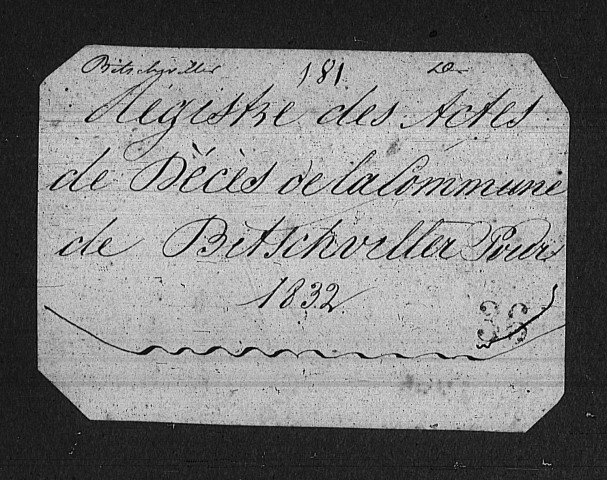 Bitschwiller 181 D
Régistre des Actes
de Décès de la Commune
de Bitschviller Pour
1832
36